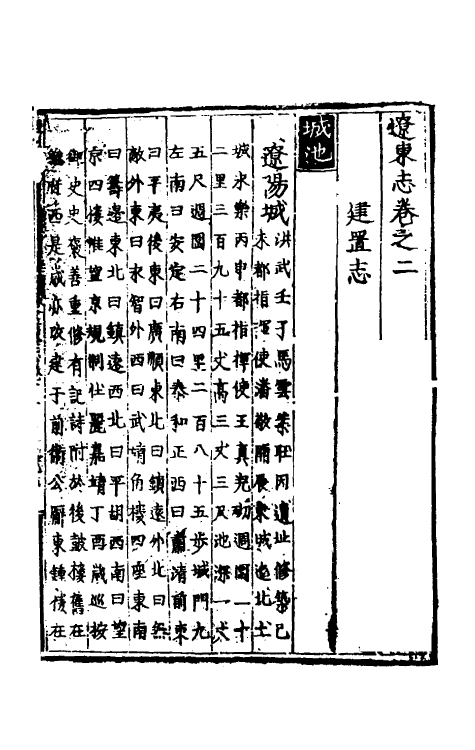 遼東志卷之二
建置志
城池
遼陽城洪武壬子馬雲葉旺因遺址修築己
未都指揮使潘敬開展東城迤北土
城永樂丙申都指揮使王真完砌週圍一十
二里三百九十五丈高三丈三尺池深一丈
五尺週圍二十四里二百八十五步城門九
左南曰安定右南曰泰和正西曰肅清前東
曰平夷後東曰廣順東北曰鎮遠外北曰無
敵外東曰永智外西曰武靖角楼四座東南
曰籌邊東北曰鎮遠西北曰平胡西南曰望
京四楼惟望京規制壯麗嘉靖丁酉歲巡按
御史史褒善重修有記詩附於後鼓楼舊在
都府西是歲亦改建于前衛公廨東鍾楼在